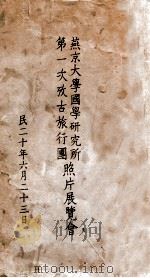 燕京大學國學研究所
第一次攷古旅行團照片展覽會
民二十年六月二十三日
mtoou.info